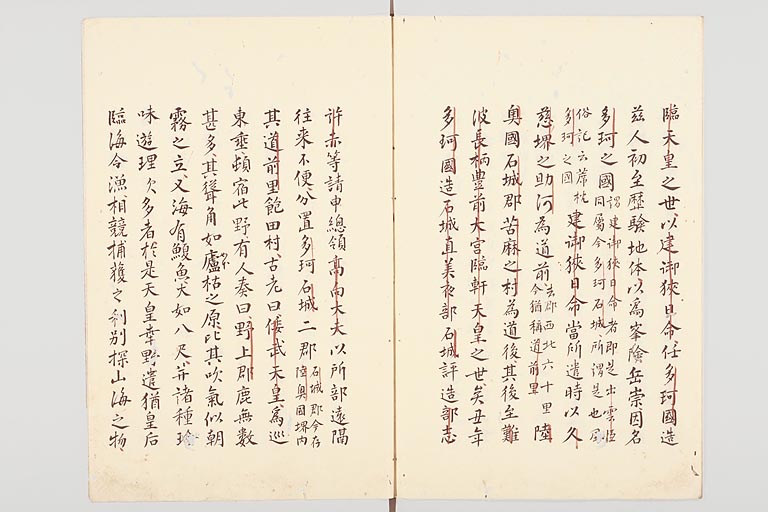 臨天皇之世以建御狹日命任多珂國造
茲人初至歷驗地体以為峯險岳崇因名
多珂之國
謂建御狹日命者即是出雲臣
同屬今多珂石城所謂是也風
俗記云薦枕
多珂之國
建御狹日命當所遣時以久
慈堺之助河為道前
去郡西北六十里
今猶稱道前里
陸
奧國石城郡苦麻之村為道後其後至難
波長柄豊前大宮臨軒天皇之世癸丑年
多珂國造石城直美夜部石城評造部志
許赤等請申總領高向大夫以所部遠隔
往来不便分置多珂石城二郡
石城郡今存
陸奧國堺内
其道前里飽田村古老曰倭武天皇為巡
東垂頓宿此野有人奏曰野上郡鹿無數
甚多其聳角如蘆枯之原比其吹氣似朝
霧之立又海有鰒魚大如八尺并諸種珎
味遊理欠多者於是天皇幸野遣猶皇后
臨海令漁相競捕獲之利別探山海之物